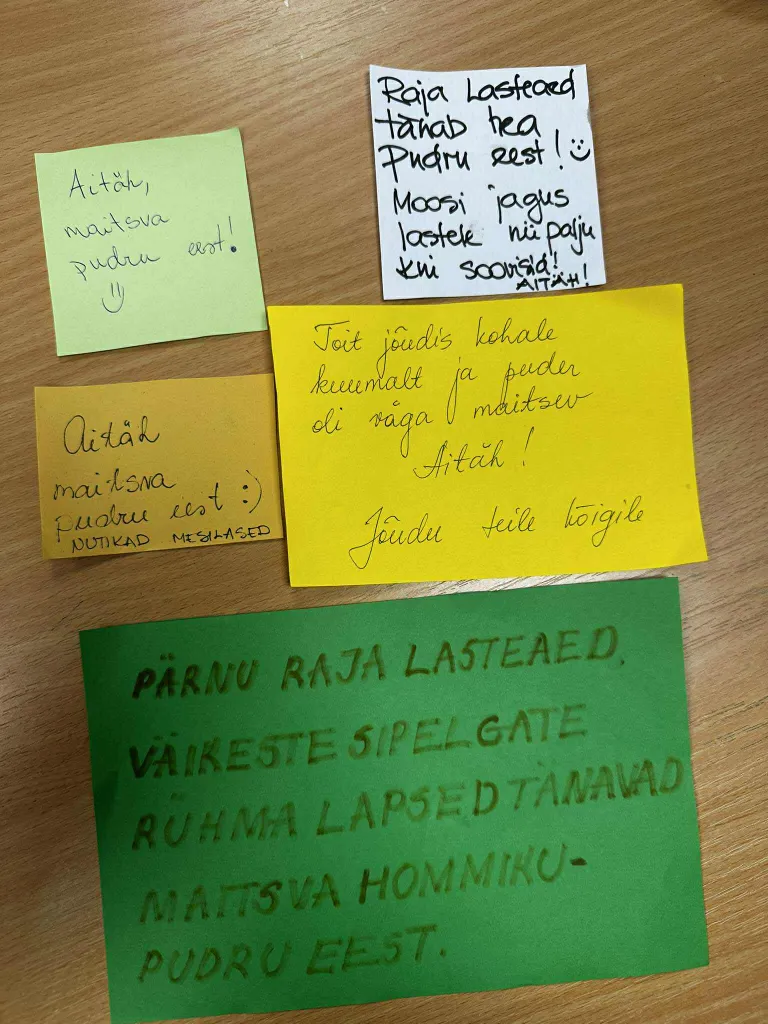 Aitäh,
maitsva
pudru eest!
Raja Lasteaed
tänab hea
Pudru eest! :)
Moosi jagus
lastele nii palju
kui soovisid!
AITÄH!
Toit jõudis kohale
kuumalt ja puder
oli väga maitsev
Aitäh!
Jõudu teile kõigile
Aitäh
maitsva
pudru eest :)
NUTIKAD MESILASED
PÄRNU RAJA LASTEAED,
VÄIKESTE SIPELGATE
RÜHMA LAPSED TÄNAVAD
MAITSVA HOMMIKU-
PUDRU EEST.